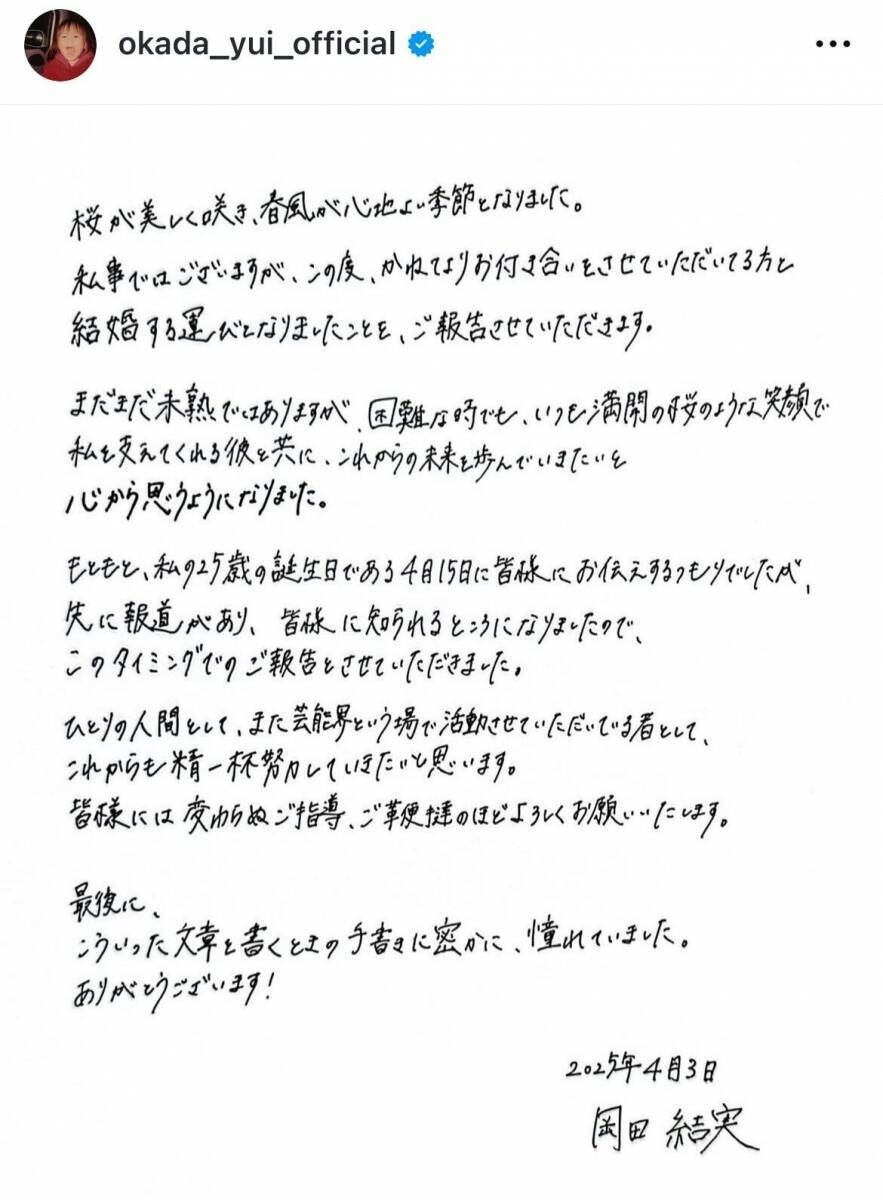 okada_yui_official
桜が美しく咲き、春風が心地よい季節となりました。
私事ではございますが、この度、かねてよりお付き合いをさせていただいてる方と
結婚する運びとなりましたことを、ご報告させていただきます。
まだまだ未熟ではありますが、困難な時でも、いつも満開の桜のような笑顔で
私を支えてくれる彼と共に、これからの未来を歩んでいきたいと
心から思うようになりました。
もともと、私の25歳の誕生日である4月15日に皆様にお伝えするつもりでしたが、
先に報道があり、皆様に知られるところになりましたので、
このタイミングでのご報告とさせていただきました。
ひとりの人間として、また芸能界という場で活動させていただいている者として、
これからも精一杯努力していきたいと思います。
皆様には変わらぬご指導、ご鞭撻のほどよろしくお願いいたします。
最後に、
こういった文章を書くときの手書きに密かに、憧れていました。
ありがとうございます!
2025年4月3日
岡田 結実